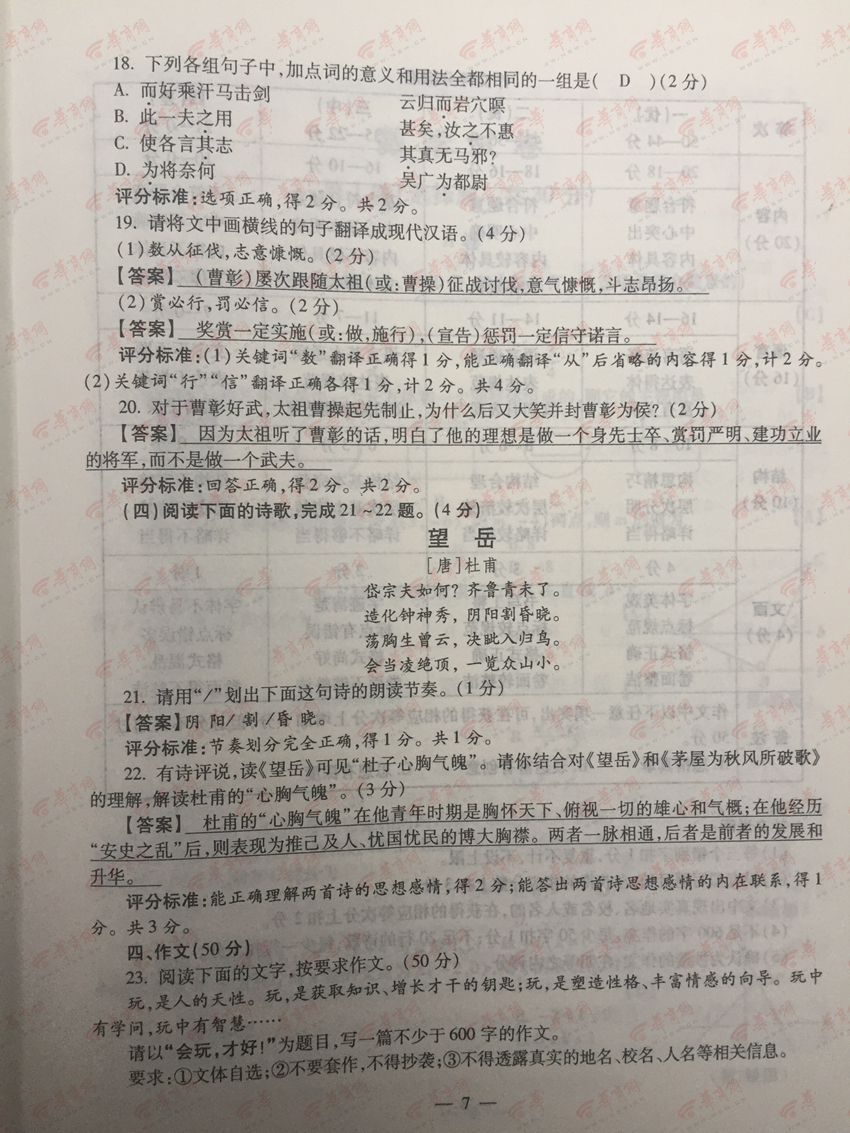 18. 下列各组句子中,加点词的意义和用法全都相同的一组是( D )(2分)
A. 而好乘汗马击剑 云归而岩穴暝
B. 此一夫之用 甚矣,汝之不惠
C. 使各言其志 其真无马邪?
D. 为将奈何 吴广为都尉
评分标准:选项正确,得2分。共2分。
19. 请将文中画横线的句子翻译成现代汉语。(4分)
(1)数从征伐,志意慷慨。(2分)
【答案】 (曹彰)屡次跟随太祖(或:曹操)征战讨伐,意气慷慨,斗志昂扬。
(2)赏必行,罚必信。(2分)
【答案】 奖赏一定实施(或:做,施行),(宣告)惩罚一定信守诺言。
评分标准:(1)关键词“数”翻译正确得1分,能正确翻译“从”后省略的内容得1分,计2分。
(2)关键词“行”“信”翻译正确各得1分,计2分。共4分。
20. 对于曹彰好武,太祖曹操起先制止,为什么后又大笑并封曹彰为侯?(2分)
【答案】 因为太祖听了曹彰的话,明白了他的理想是做一个身先士卒、赏罚严明、建功立业
的将军,而不是做一个武夫。
评分标准:回答正确,得2分。共2分。
(四)阅读下面的诗歌,完成21~22题。(4分)
望 岳
[唐]杜甫
岱宗夫如何?齐鲁青未了。
造化钟神秀,阴阳割昏晓。
荡胸生曾云,决眦入归鸟。
会当凌绝顶,一览众山小。
21. 请用“/”划出下面这句诗的朗读节奏。(1分)
【答案】阴 阳/ 割 /昏 晓。
评分标准:节奏划分完全正确,得1分。共1分。
22. 有诗评说,读《望岳》可见“杜子心胸气魄”。请你结合对《望岳》和《茅屋为秋风所破歌》
的理解,解读杜甫的“心胸气魄”。(3分)
【答案】 杜甫的“心胸气魄”在他青年时期是胸怀天下、俯视一切的雄心和气概;在他经历
“安史之乱”后,则表现为推己及人、忧国忧民的博大胸襟。两者一脉相通,后者是前者的发展和
升华。
评分标准:能正确理解两首诗的思想感情,得2分;能答出两首诗思想感情的内在联系,得1
分。共3分。
四、作文(50分)
23. 阅读下面的文字,按要求作文。(50分)
玩,是人的天性。玩,是获取知识、增长才干的钥匙;玩,是塑造性格、丰富情感的向导。玩中
有学问,玩中有智慧……
请以“会玩,才好!”为题目,写一篇不少于600字的作文。
要求:①文体自选;②不要套作,不得抄袭;③不得透露真实的地名、校名、人名等相关信息。
— 7 —